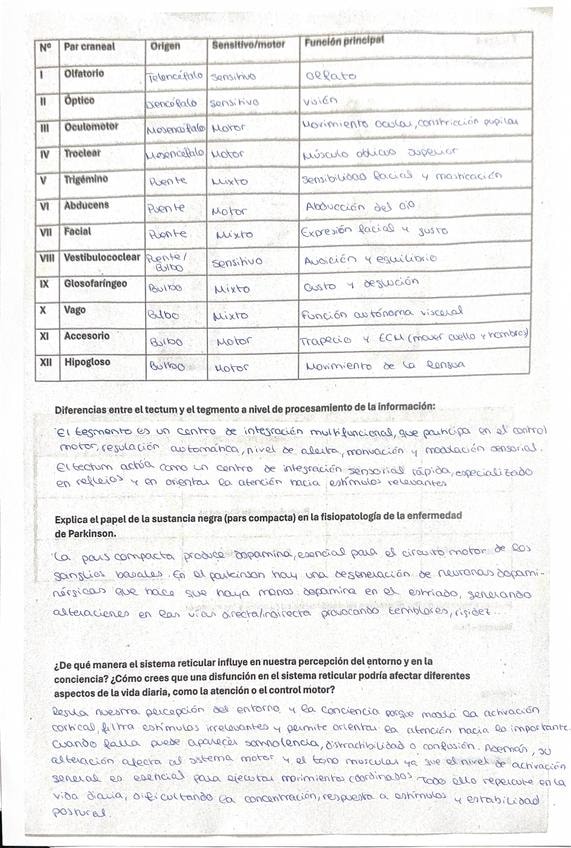 Nº Par craneal Origen Sensitivo/motor Función principal
I Olfatorio Telencéfalo Sensitivo Olfato
II Óptico Diencéfalo Sensitivo Visión
III Oculomotor Mesencéfalo Motor Movimiento ocular, constricción pupilar
IV Troclear Mesencéfalo Motor Músculo oblicuo superior
V Trigémino Puente Mixto Sensibilidad facial y masticación
VI Abducens Puente Motor Abducción del ojo
VII Facial Puente Mixto Expresión facial y gusto
VIII Vestibulococlear Puente/ Bulbo Sensitivo Audición y equilibrio
IX Glosofaríngeo Bulbo Mixto Gusto y deglución
X Vago Bulbo Mixto Función autónoma visceral
XI Accesorio Bulbo Motor Trapecio y ECM (mover cuello y hombros)
XII Hipogloso Bulbo Motor Movimiento de la lengua
Diferencias entre el tectum y el tegmento a nivel de procesamiento de la información:
El tegmento es un centro de integración multifuncional, que participa en el control
motor, regulación automática, nivel de alerta, motivación y modulación sensorial.
El tectum actúa como un centro de integración sensorial rápida, especializado
en reflejos y en orientar la atención hacia estímulos relevantes
Explica el papel de la sustancia negra (pars compacta) en la fisiopatología de la enfermedad
de Parkinson.
La pars compacta produce dopamina, esencial para el circuito motor de los
ganglios basales. En el parkinson hay una degeneración de neuronas dopami-
nérgicas que hace que haya menos dopamina en el estriado, generando
alteraciones en las vías directa/indirecta provocando temblores, rigidez...
¿De qué manera el sistema reticular influye en nuestra percepción del entorno y en la
conciencia? ¿Cómo crees que una disfunción en el sistema reticular podría afectar diferentes
aspectos de la vida diaria, como la atención o el control motor?
Regula nuestra percepción del entorno y la conciencia porque modula la activación
cortical, filtra estímulos irrelevantes y permite orientar la atención hacia lo importante.
Cuando falla puede aparecer somnolencia, distractibilidad o confusión. Además, su
alteración afecta al sistema motor y el tono muscular ya que el nivel de activación
general es esencial para ejecutar movimientos coordinados. Todo ello repercute en la
vida diaria, dificultando la concentración, respuesta a estímulos y estabilidad
postural.